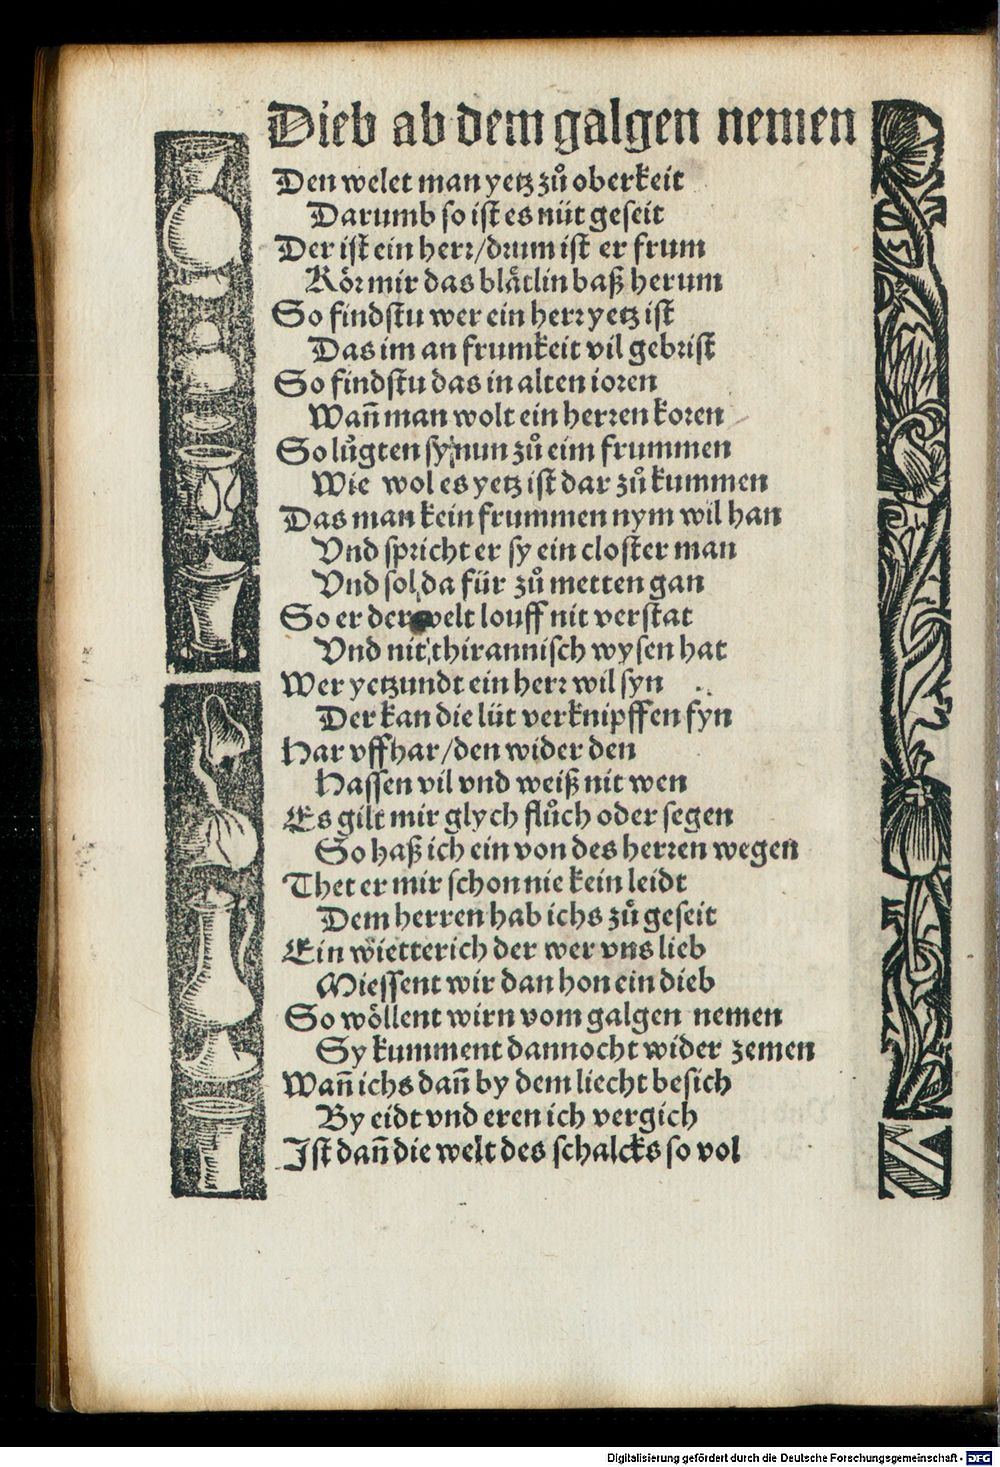 Dieb ab dem galgen nemen
Den welet man yetz zů oberkeit
Darumb so ist es nüt geseit
Der ist ein herr/drum ist er frum
Kör mir das blåtlin baß herum
So findstu wer ein herr yetz ist
Das im an frumkeit vil gebrist
So findstu das in alten ioren
Wañ man wolt ein herren koren
So lůgten sy nun zů eim frummen
Wie wol es yetz ist dar zů kummen
Das man kein frummen nym wil han
Vnd spricht er sy ein closter man
Vnd sol da für zů metten gan
So er der welt louff nit verstat
Vnd nit thirannisch wysen hat
Wer yetzundt ein herr wil syn
Der kan die lüt verknipffen fyn
Har vffhar/den wider den
Hassen vil vnd weiß nit wen
Es gilt mir glych flůch oder segen
So haß ich ein von des herren wegen
Thet er mir schon nie kein leidt
Dem herren hab ichs zů geseit
Ein wietterich der wer vns lieb
Miessent wir dan hon ein dieb
So wöllent wirn vom galgen nemen
Sy kumment dannocht wider zemen
Wañ ichs dañ by dem liecht besich
By eidt vnd eren ich vergich
Ist dañ die welt des schalcks so vol
Digitalisierung gefördert durch die Deutsche Forschungsgemeinschaft - DFG